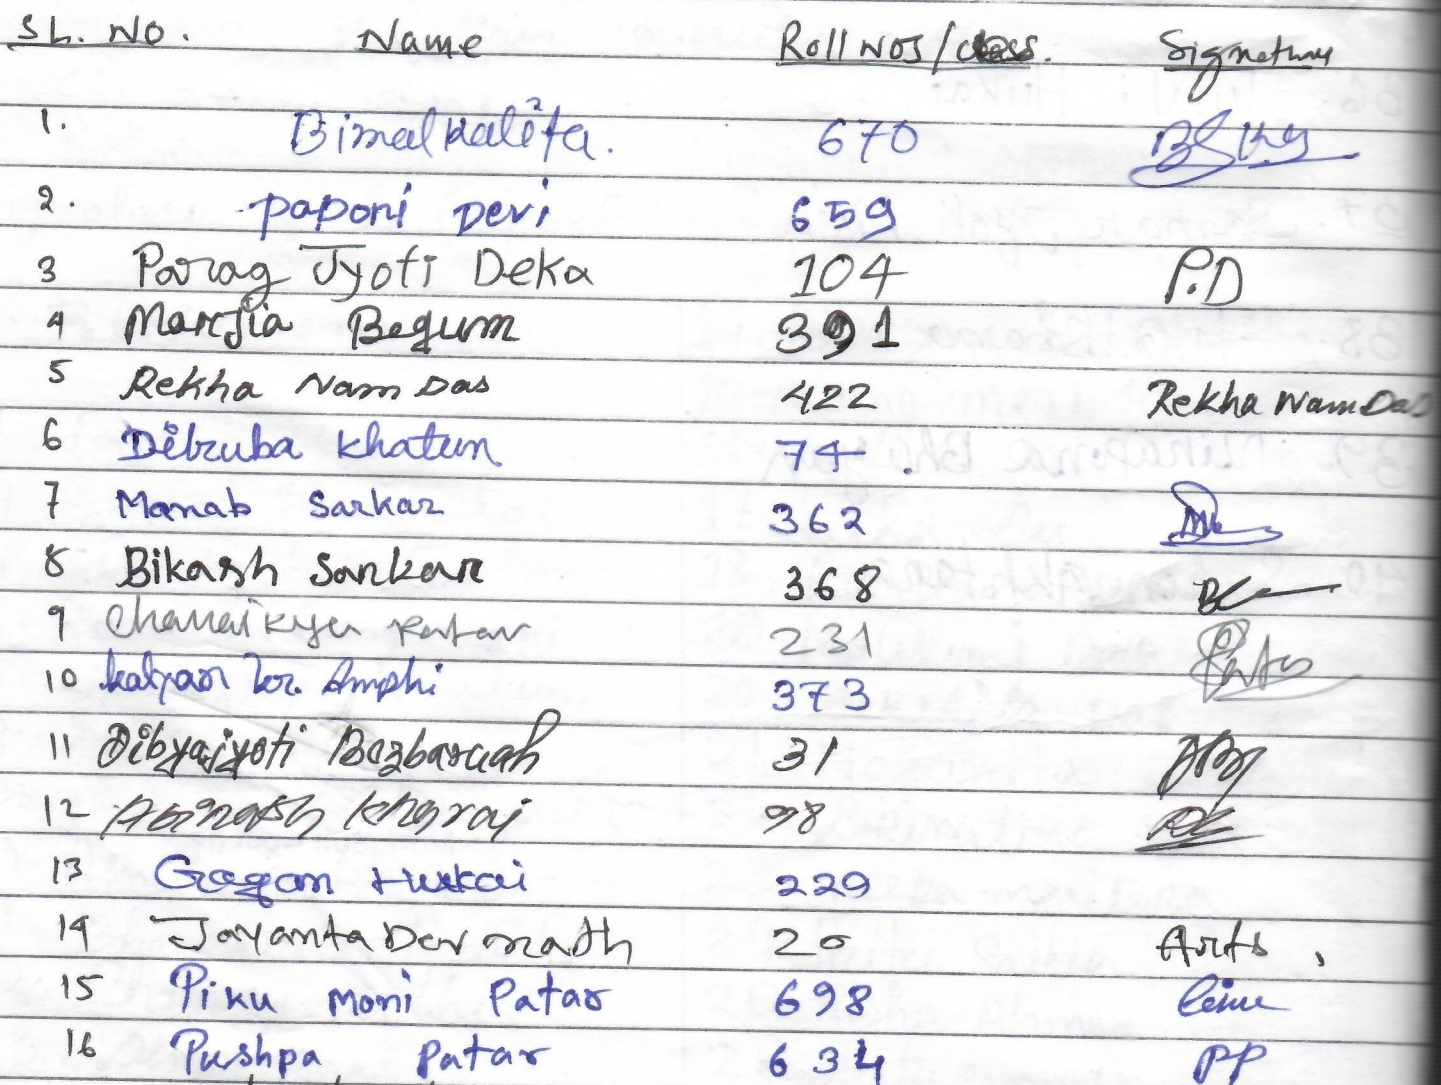 SL. No. Name Roll Nos/class. Signature
1. Bimal kalita. 670
2. paponi Devi 659
3 Parag Jyoti Deka 104 P.D
4 Marjia Begum 391
5 Rekha Nam Das 422 Rekha Nam Das
6 Dibruba Khatun 74.
7 Manab Sarkar 362
8 Bikash Sarkar 368
9 Chanaikya Patar 231
10 kalyan kr. Amphi 373
11 Dibyajyoti Bezbaruah 31
12 Abinash Kharai 98
13 Gagan Hukai 229
14 Jayanta Dev nath 20 Arts,
15 Piku Moni Patar 698
16 Pushpa Patar 634 PP